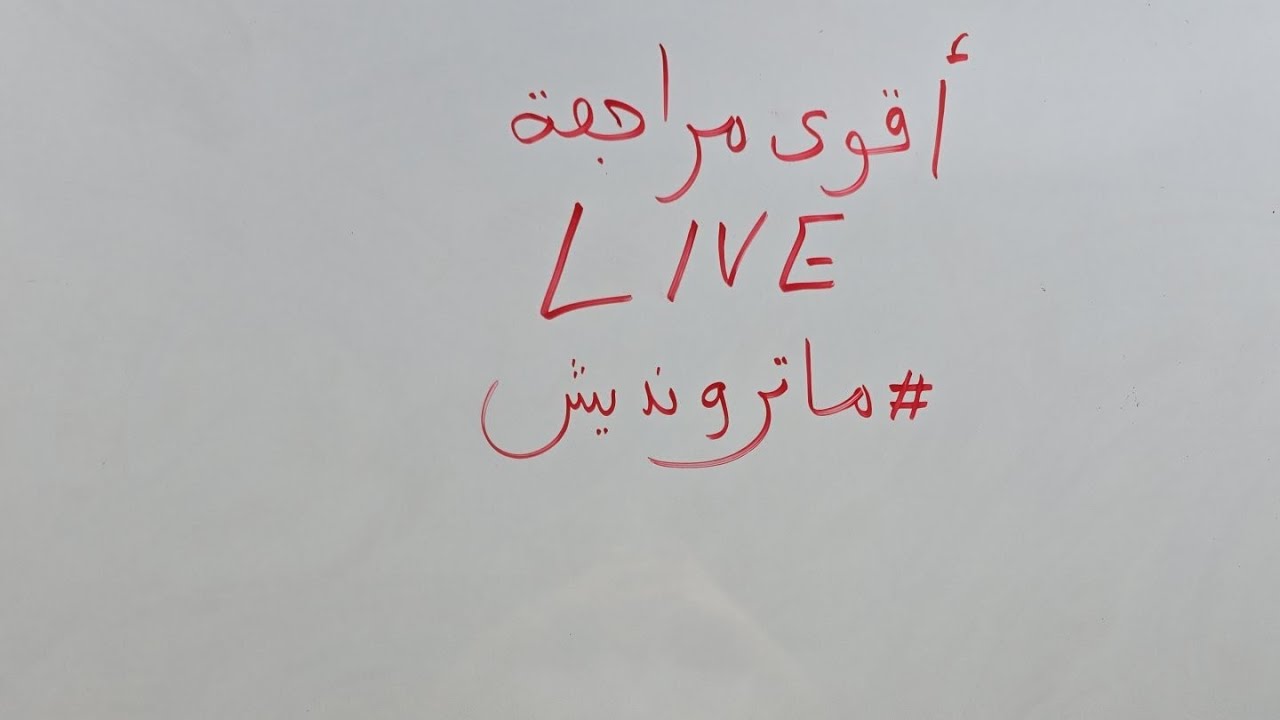 أقوى مراجعة
LIVE
#ماترونديش